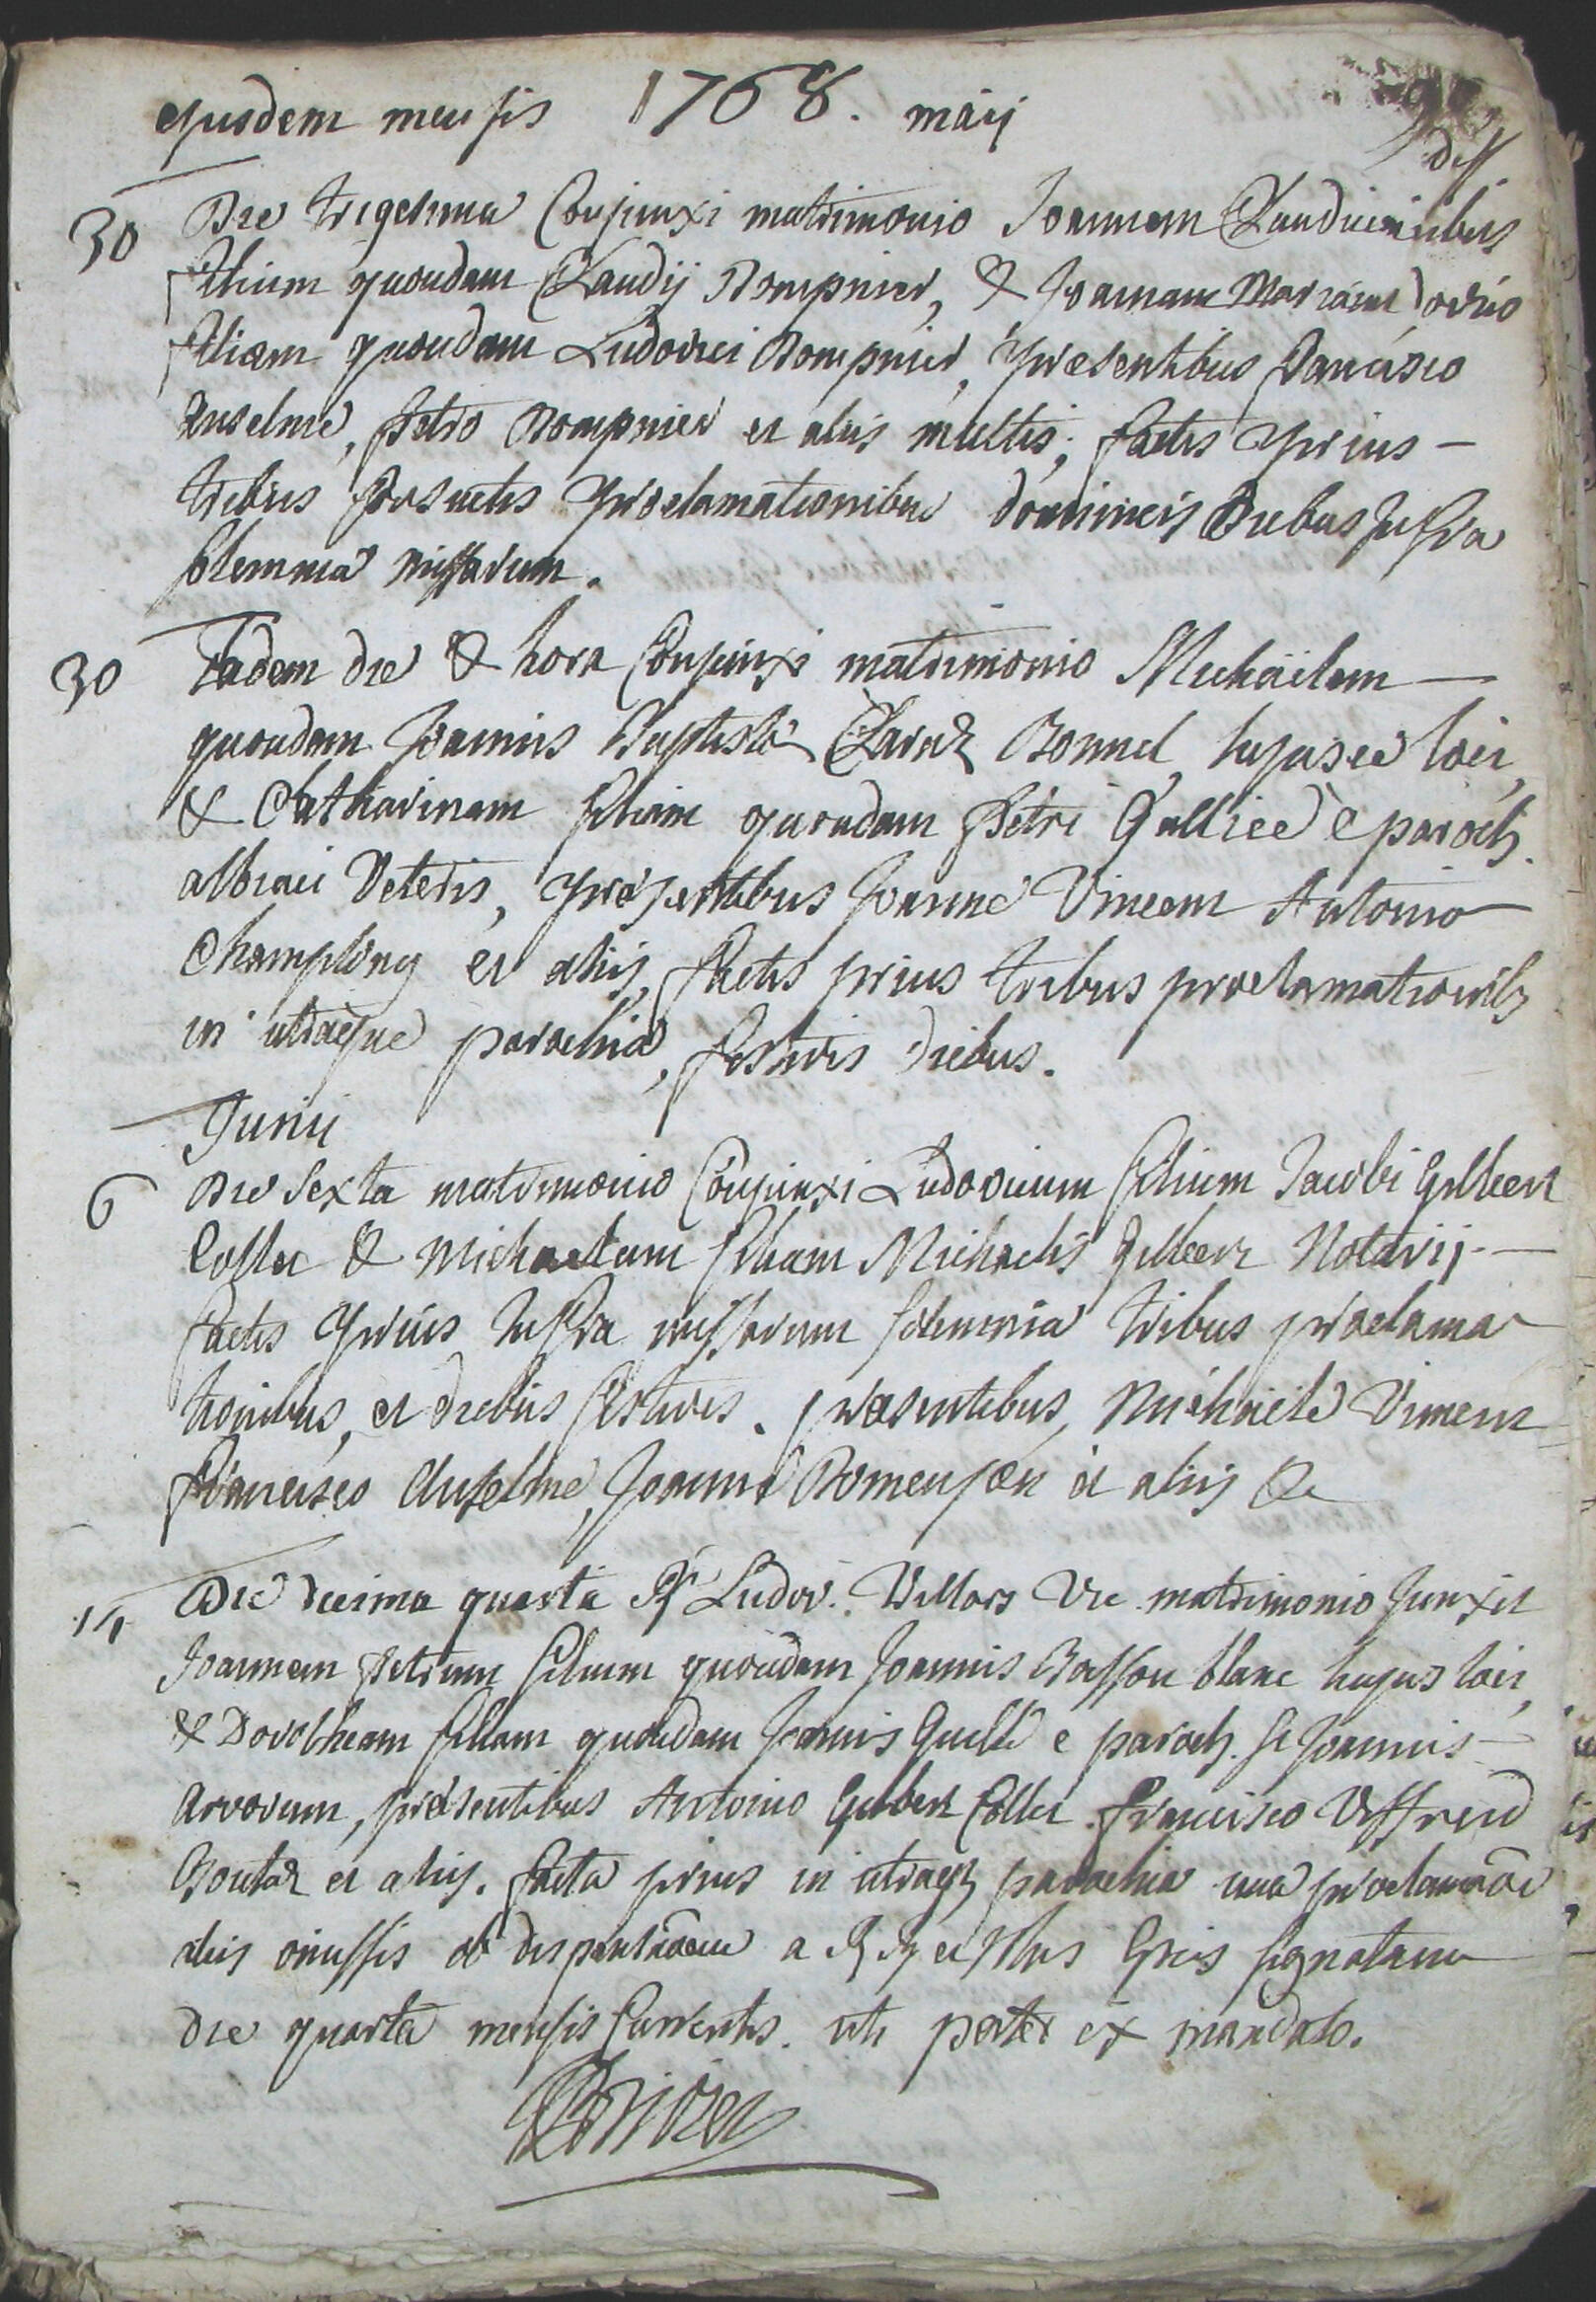 ejusdem mensis 1768. maij
30 Die trigesima Conjunxi matrimonio Joannem Claudium
filium quondam Claudij Rompnier, & Joannam Mariam
filiam quondam Ludovici Rompnier, præsentibus
Anselme, petro Rompnier et aliis multis; factis prius -
tribus proclamationibus dominicis Diebus Infra
solemnia missarum.
30 Eadem die & hora Conjunxi matrimonio Michäelem -
quondam Joannis Baptistæ Claraz Bonnel, hujusce loci,
& Catharinam filiam quondam Petri Gallice è paroch.
albiaci Veteris, præsentibus Joanne Vincent Antonio
Champlong et aliis, factis prius tribus proclamationib9
in utraque parochia, festivis diebus.
Junii
6 Die Sexta matrimonio Conjunxi Ludovicum filium Jacobi Gilbert
Collet & Michaelam filiam Michaelis Gilbert Notarij -
factis prius Infra missarum solemnia tribus proclama
tionibus, et diebus festivis. præsentibus, Michaële Vincent
francisco Anselme, Joanne et aliis &c
14 Die decima quarta Rd Ludov. Villars Vic. matrimonio Junxit
Joannem Petrum filium quondam Joannis Basson blanc hujus loci,
& Dorotheam filiam quondam Joannis e paroch. St Joannis -
arvarum, præsentibus Antonio Gilbert Collet. francisco Vffrend
Boutaz et aliis. facta prius in utraq3 parochia una proclamaõe
aliis omissis ob dispensaõem a signatam
die quarta mensis Currentis. uti patet ex mandato.